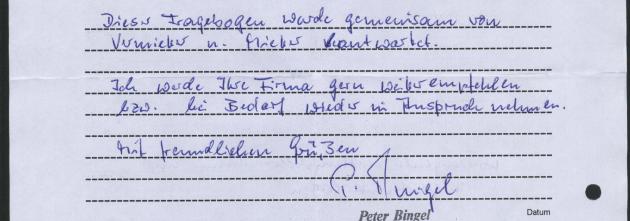 Dieser Fragebogen wurde gemeinsam von
Vermieter u. Mieter beantwortet.
Ich werde Ihre Firma gern weiterempfehlen
bzw. bei Bedarf wieder in Anspruch nehmen.
Mit freundlichen Grüßen
P. Bingel
Peter Bingel
Datum